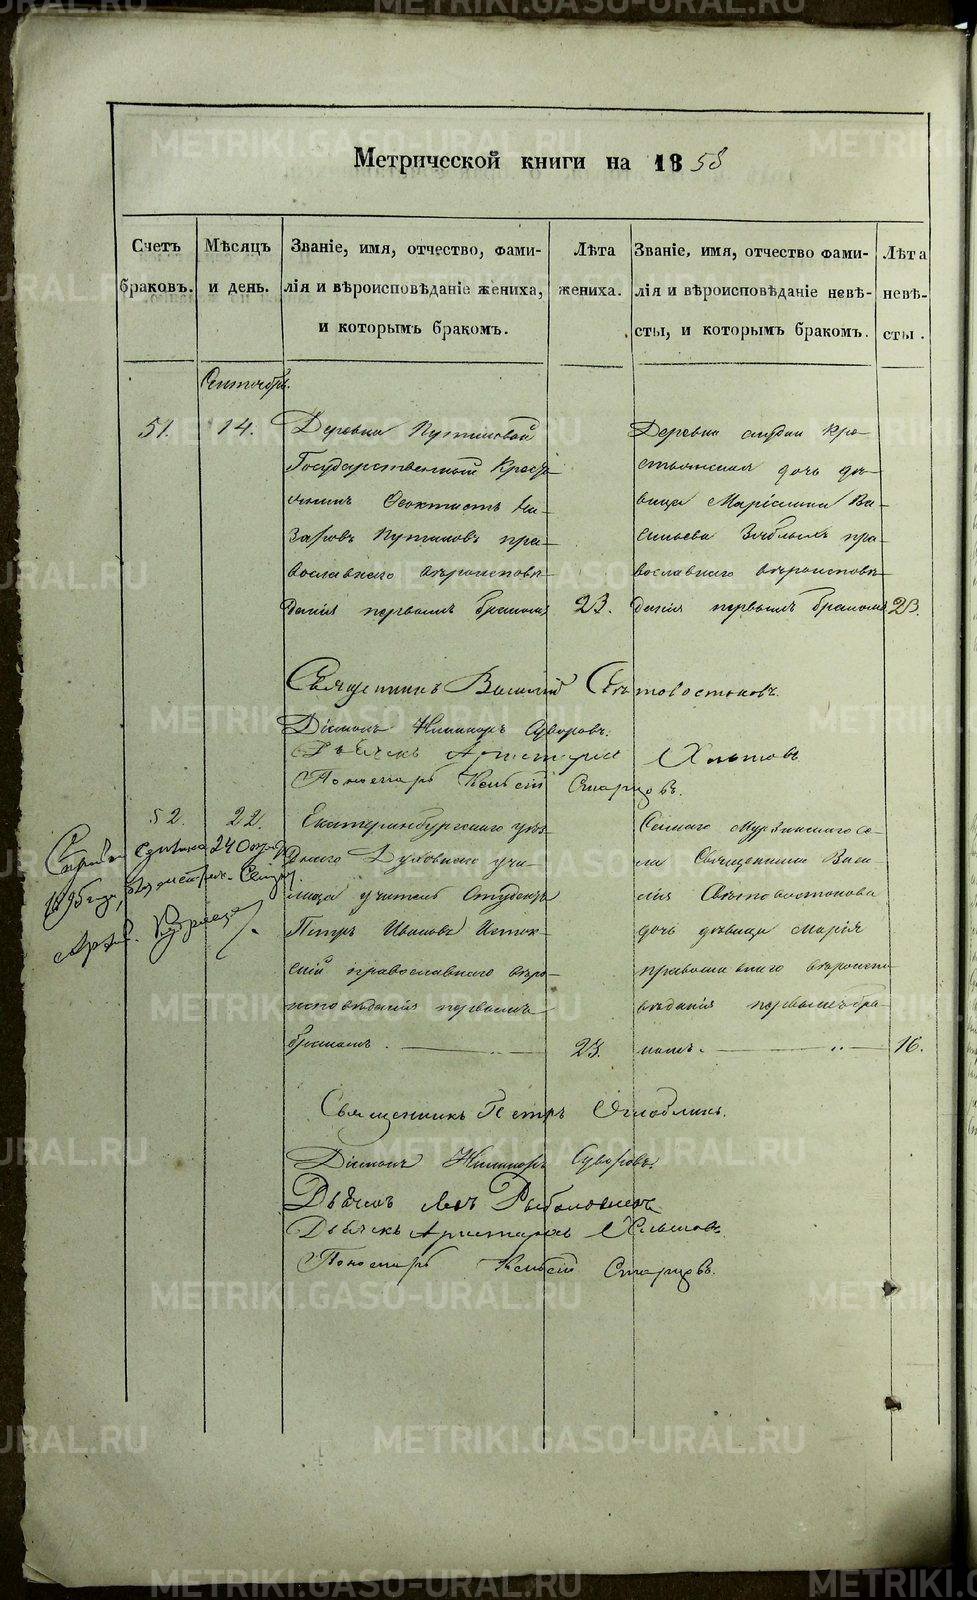 Метрической книги на 1858
Счетъ браковъ.
Мѣсяцъ и день.
Званіе, имя, отчество, фами-
лія и вѣроисповѣданіе жениха,
и которымъ бракомъ.
Лѣта
жениха.
Званіе, имя, отчество фами-
лія и вѣроисповѣданіе невѣ-
сты, и которымъ бракомъ.
Лѣта
невѣ-
сты.
Сентябрь.
51.
14.
Деревни Путиловой
Государственный Кресть
янинъ Ѳеоктистъ На-
заровъ Путиловъ пра-
вославнаго вѣроисповѣ-
данія первымъ бракомъ
23.
Деревни Кре-
стьянская дочь дѣ-
вица Ва-
сильева пра-
вославнаго вѣроисповѣ-
данія первымъ бракомъ
23.
Священникъ Василій Свѣтовостоковъ
Діаконъ Никаноръ Суворовъ.
Дьячекъ Аристархъ
Пономарь Старцовъ.
52.
22.
Екатеринбургскаго уѣз-
днаго Духовнаго учи-
лища учитель Студентъ
Петръ Ивановъ
скій православнаго вѣро-
исповѣданія первымъ
бракомъ.
23.
Сего Мурзинскаго се-
ла Священника Васи-
лія Свѣтовостокова
дочь дѣвица Марія
православнаго вѣроиспо-
вѣданія первымъ бра-
комъ.
16.
24
1895 года,
Священникъ Петръ Оглоблинъ.
Діаконъ Никаноръ Суворовъ.
Дьячекъ
Дьячекъ Аристархъ
Пономарь Старцовъ.
METRIKI.GASO-URAL.RU